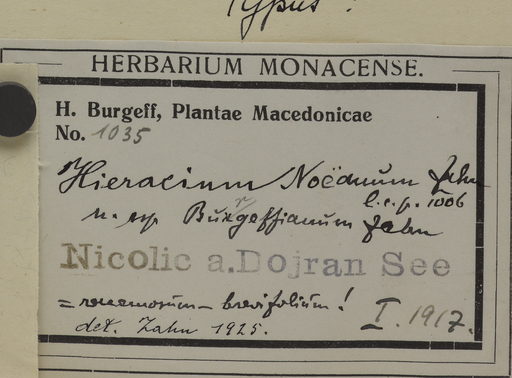 Typus!
HERBARIUM MONACENSE.
H. Burgeff, Plantae Macedonicae
No. 1035
Hieracium Noëanum Zahn
l.c.p. 1006
n. ssp Burgeffianum Zahn
Nicolic a. Dojran See
= racemosum – brevifolium!
det. Zahn 1925.
I. 1917.